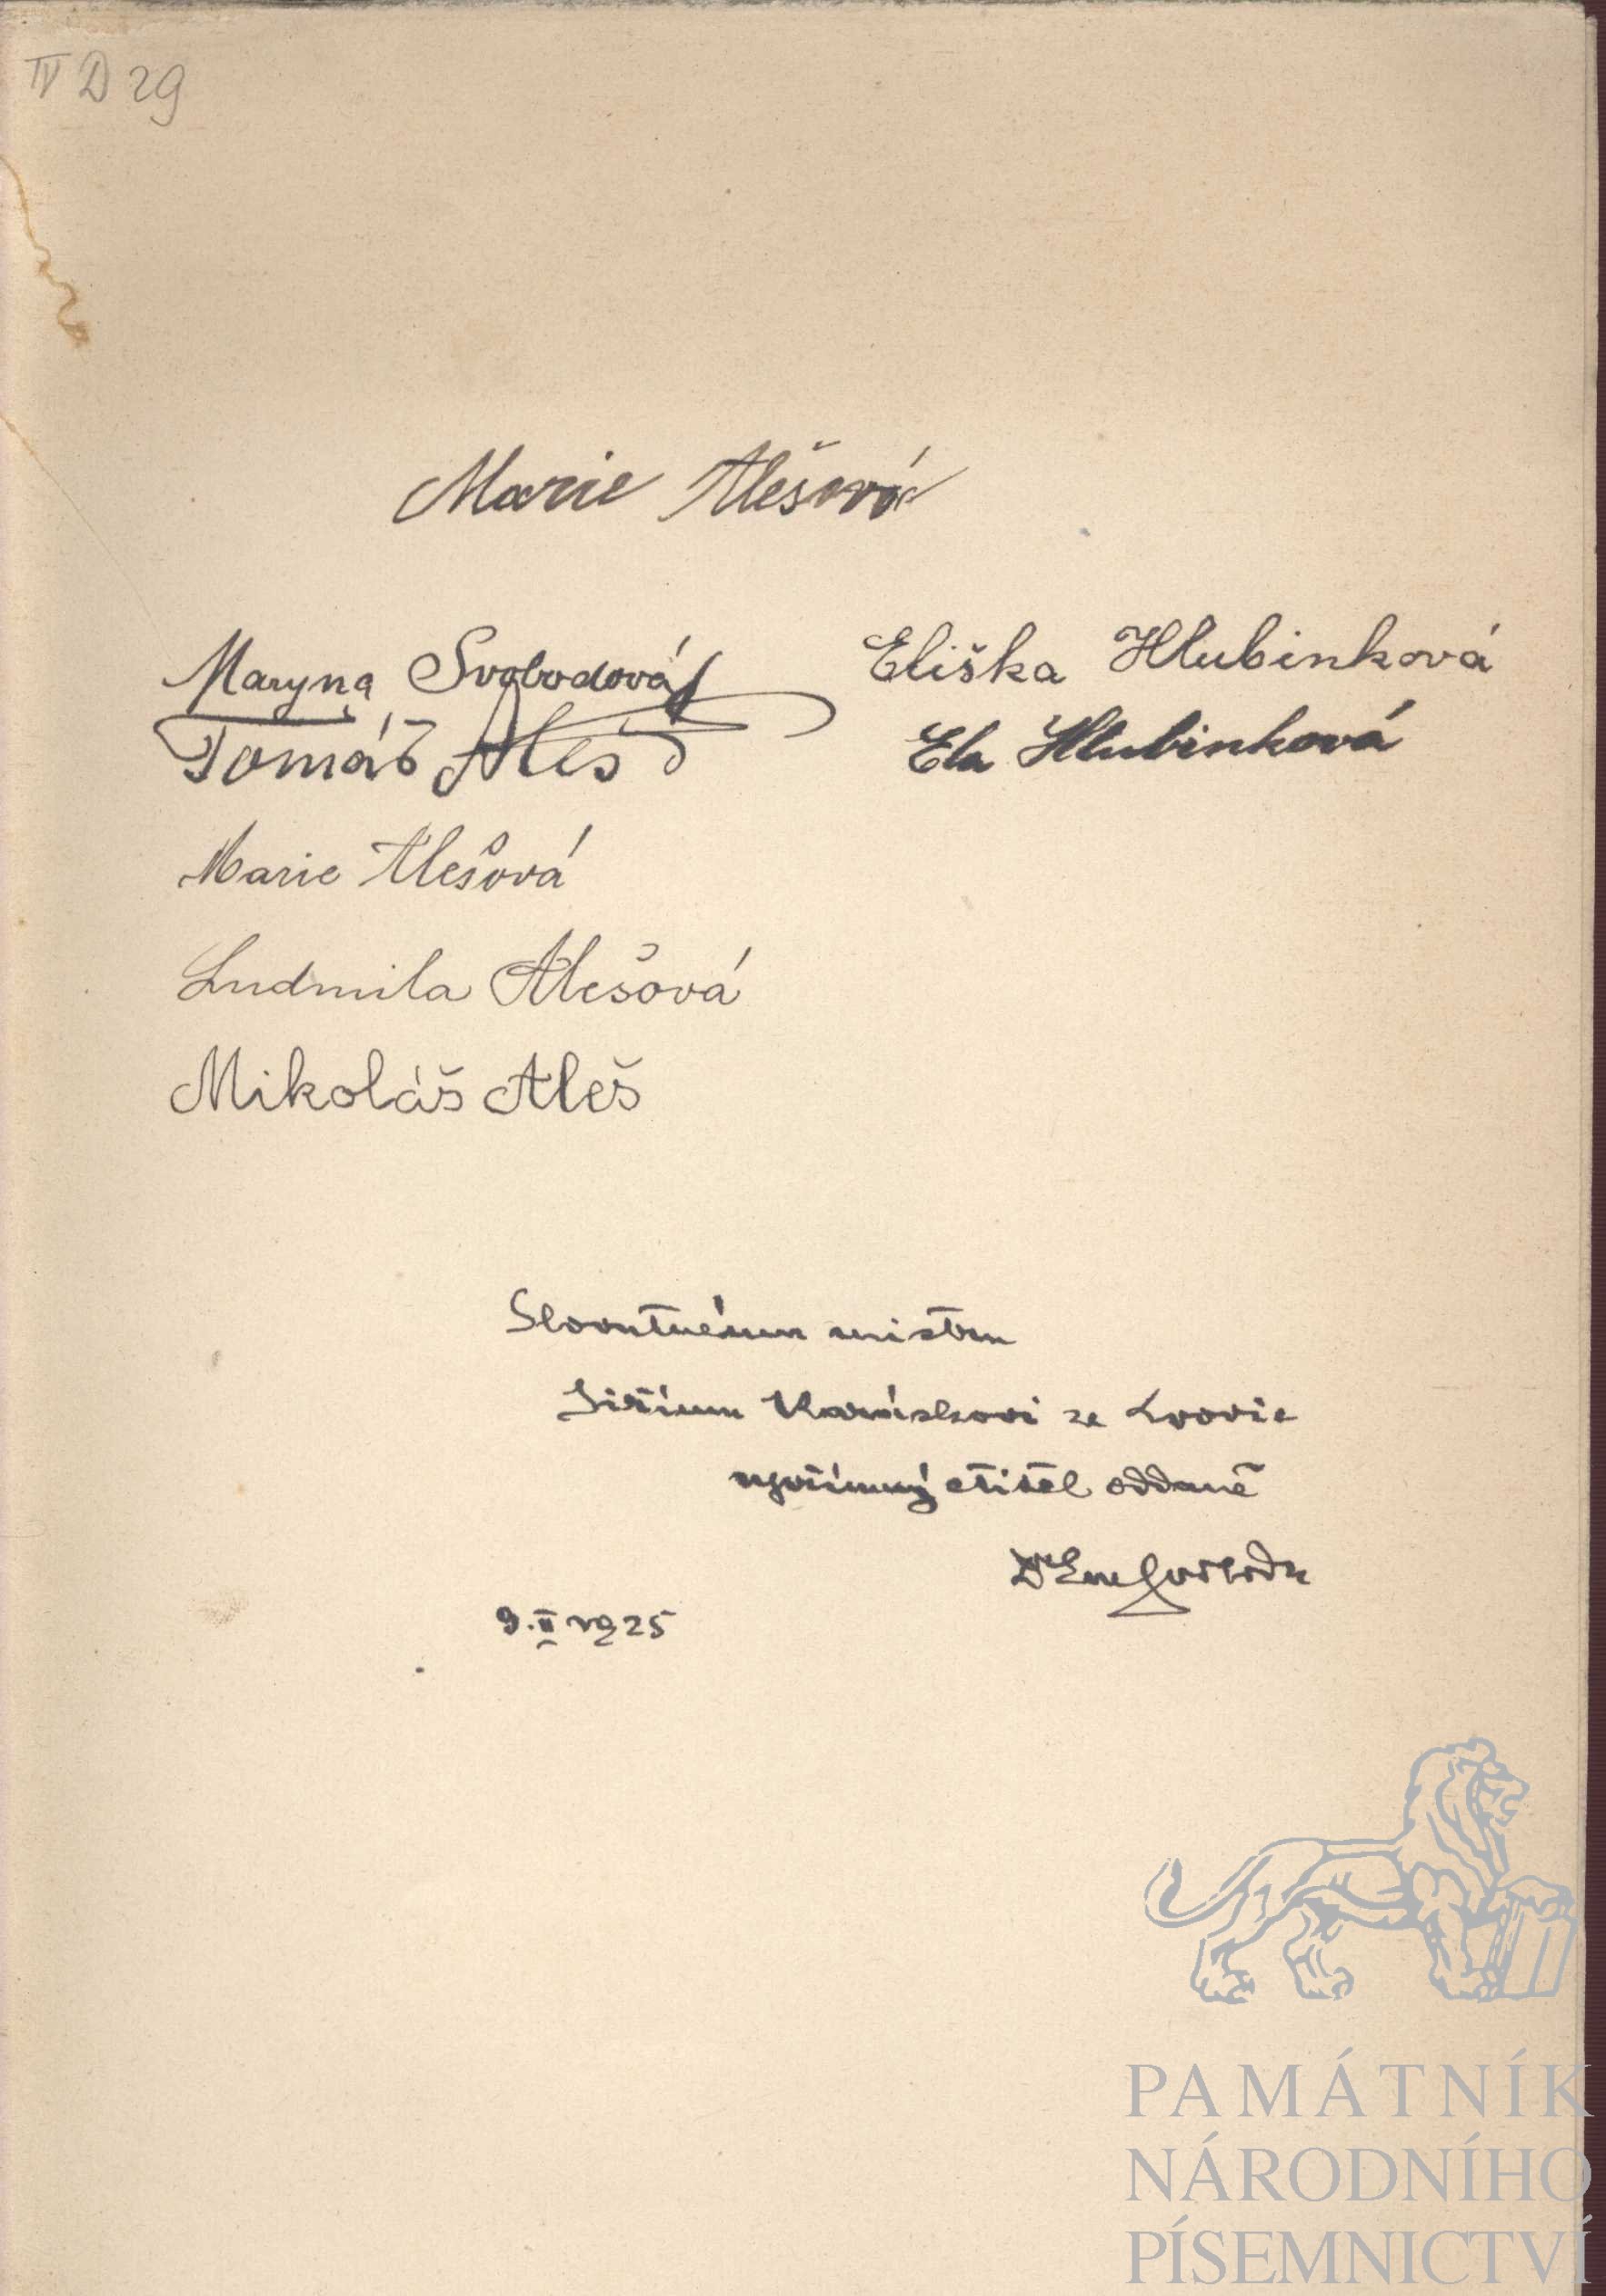 IV D 29
Marie Alešová
Maryna Svobodová
Tomáš Aleš
Marie Alešová
Ludmila Alešová
Mikoláš Aleš
Eliška Hlubinková
Ela Hlubinková
Slovutnému mistru
Jiřímu Karáskovi ze Lvovic
upřímný ctitel oddaně
Dr Em Svoboda
9. II 1925
PAMÁTNÍK
NÁRODNÍHO
PÍSEMNICTVÍ